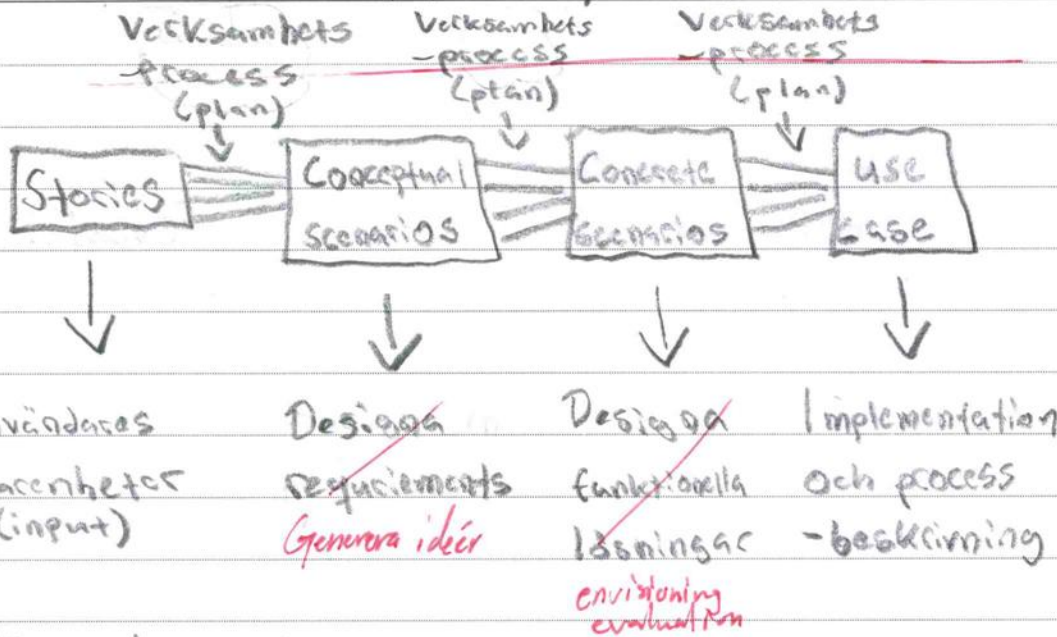 Verksambets
-process
(plan)
Verksambets
-process
(plan)
Verksambets
-process
(plan)
Stories
Conceptual
scenarios
Concrete
scenarios
use
case
vändares
arenheter
(input)
Designa
requriements
Generera idéer
Designa
funktionella
lösningar
envisioning
evaluation
Implementation
och process
-beskrivning